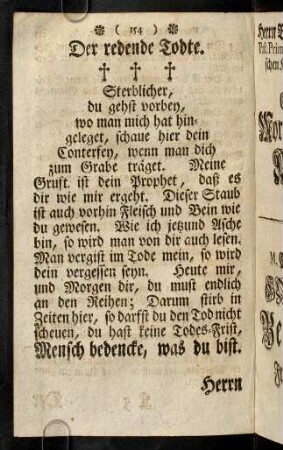 ❁ ( 154 ) ❁
Der redende Todte.
† † †
Sterblicher,
du gehst vorbey,
wo man mich hat hin-
geleget, schaue hier dein
Conterfey, wenn man dich
zum Grabe träget. Meine
Gruft ist dein Prophet, daß es
dir wie mir ergeht. Dieser Staub
ist auch vorhin Fleisch und Bein wie
du gewesen. Wie ich jetzund Asche
bin, so wird man von dir auch lesen.
Man vergist im Tode mein, so wird
dein vergessen seyn. Heute mir,
und Morgen dir, du must endlich
an den Reihen; Darum stirb in
Zeiten hier, so darfst du den Tod nicht
scheuen, du hast keine Todes-Frist,
Mensch bedencke, was du bist.
Herrn
Herrn
Pil. Prim
schen
Mor
M.